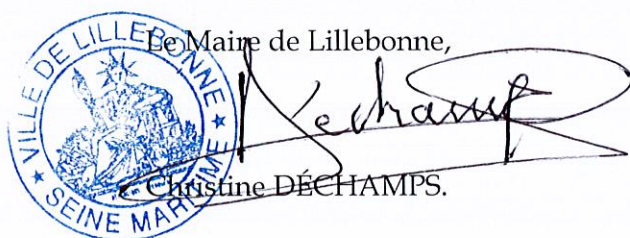 Le Maire de Lillebonne,
VILLE DE LILLEBONNE
★ SEINE MARITIME ★
Dechamps
Christine DÉCHAMPS.